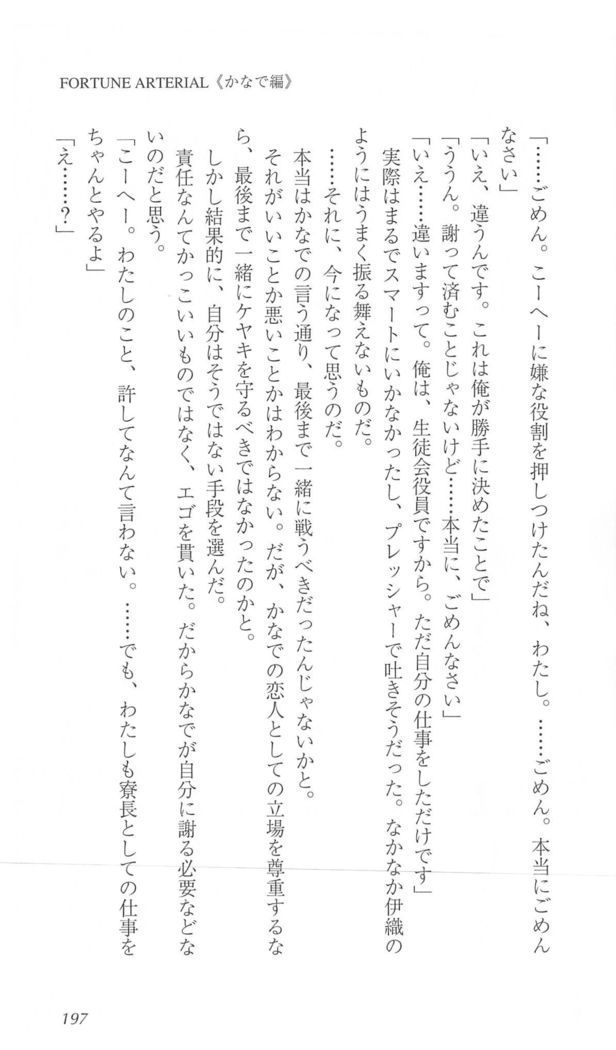 FORTUNE ARTERIAL《かなで編》
「……ごめん。こーへーに嫌な役割を押しつけたんだね、わたし。……ごめん。本当にごめん
なさい」
「いえ、違うんです。これは俺が勝手に決めたことで」
「ううん。謝って済むことじゃないけど……本当に、ごめんなさい」
「いえ……違いますって。俺は、生徒会役員ですから。ただ自分の仕事をしただけです」
実際はまるでスマートにいかなかったし、プレッシャーで吐きそうだった。なかなか伊織の
ようにはうまく振る舞えないものだ。
……それに、今になって思うのだ。
本当はかなでの言う通り、最後まで一緒に戦うべきだったんじゃないかと。
それがいいことか悪いことかはわからない。だが、かなでの恋人としての立場を尊重するな
ら、最後まで一緒にケヤキを守るべきではなかったのかと。
しかし結果的に、自分はそうではない手段を選んだ。
責任なんてかっこいいものではなく、エゴを貫いた。だからかなでが自分に謝る必要などな
いのだと思う。
「こーへー。わたしのこと、許してなんて言わない。……でも、わたしも寮長としての仕事を
ちゃんとやるよ」
「え……？」
197